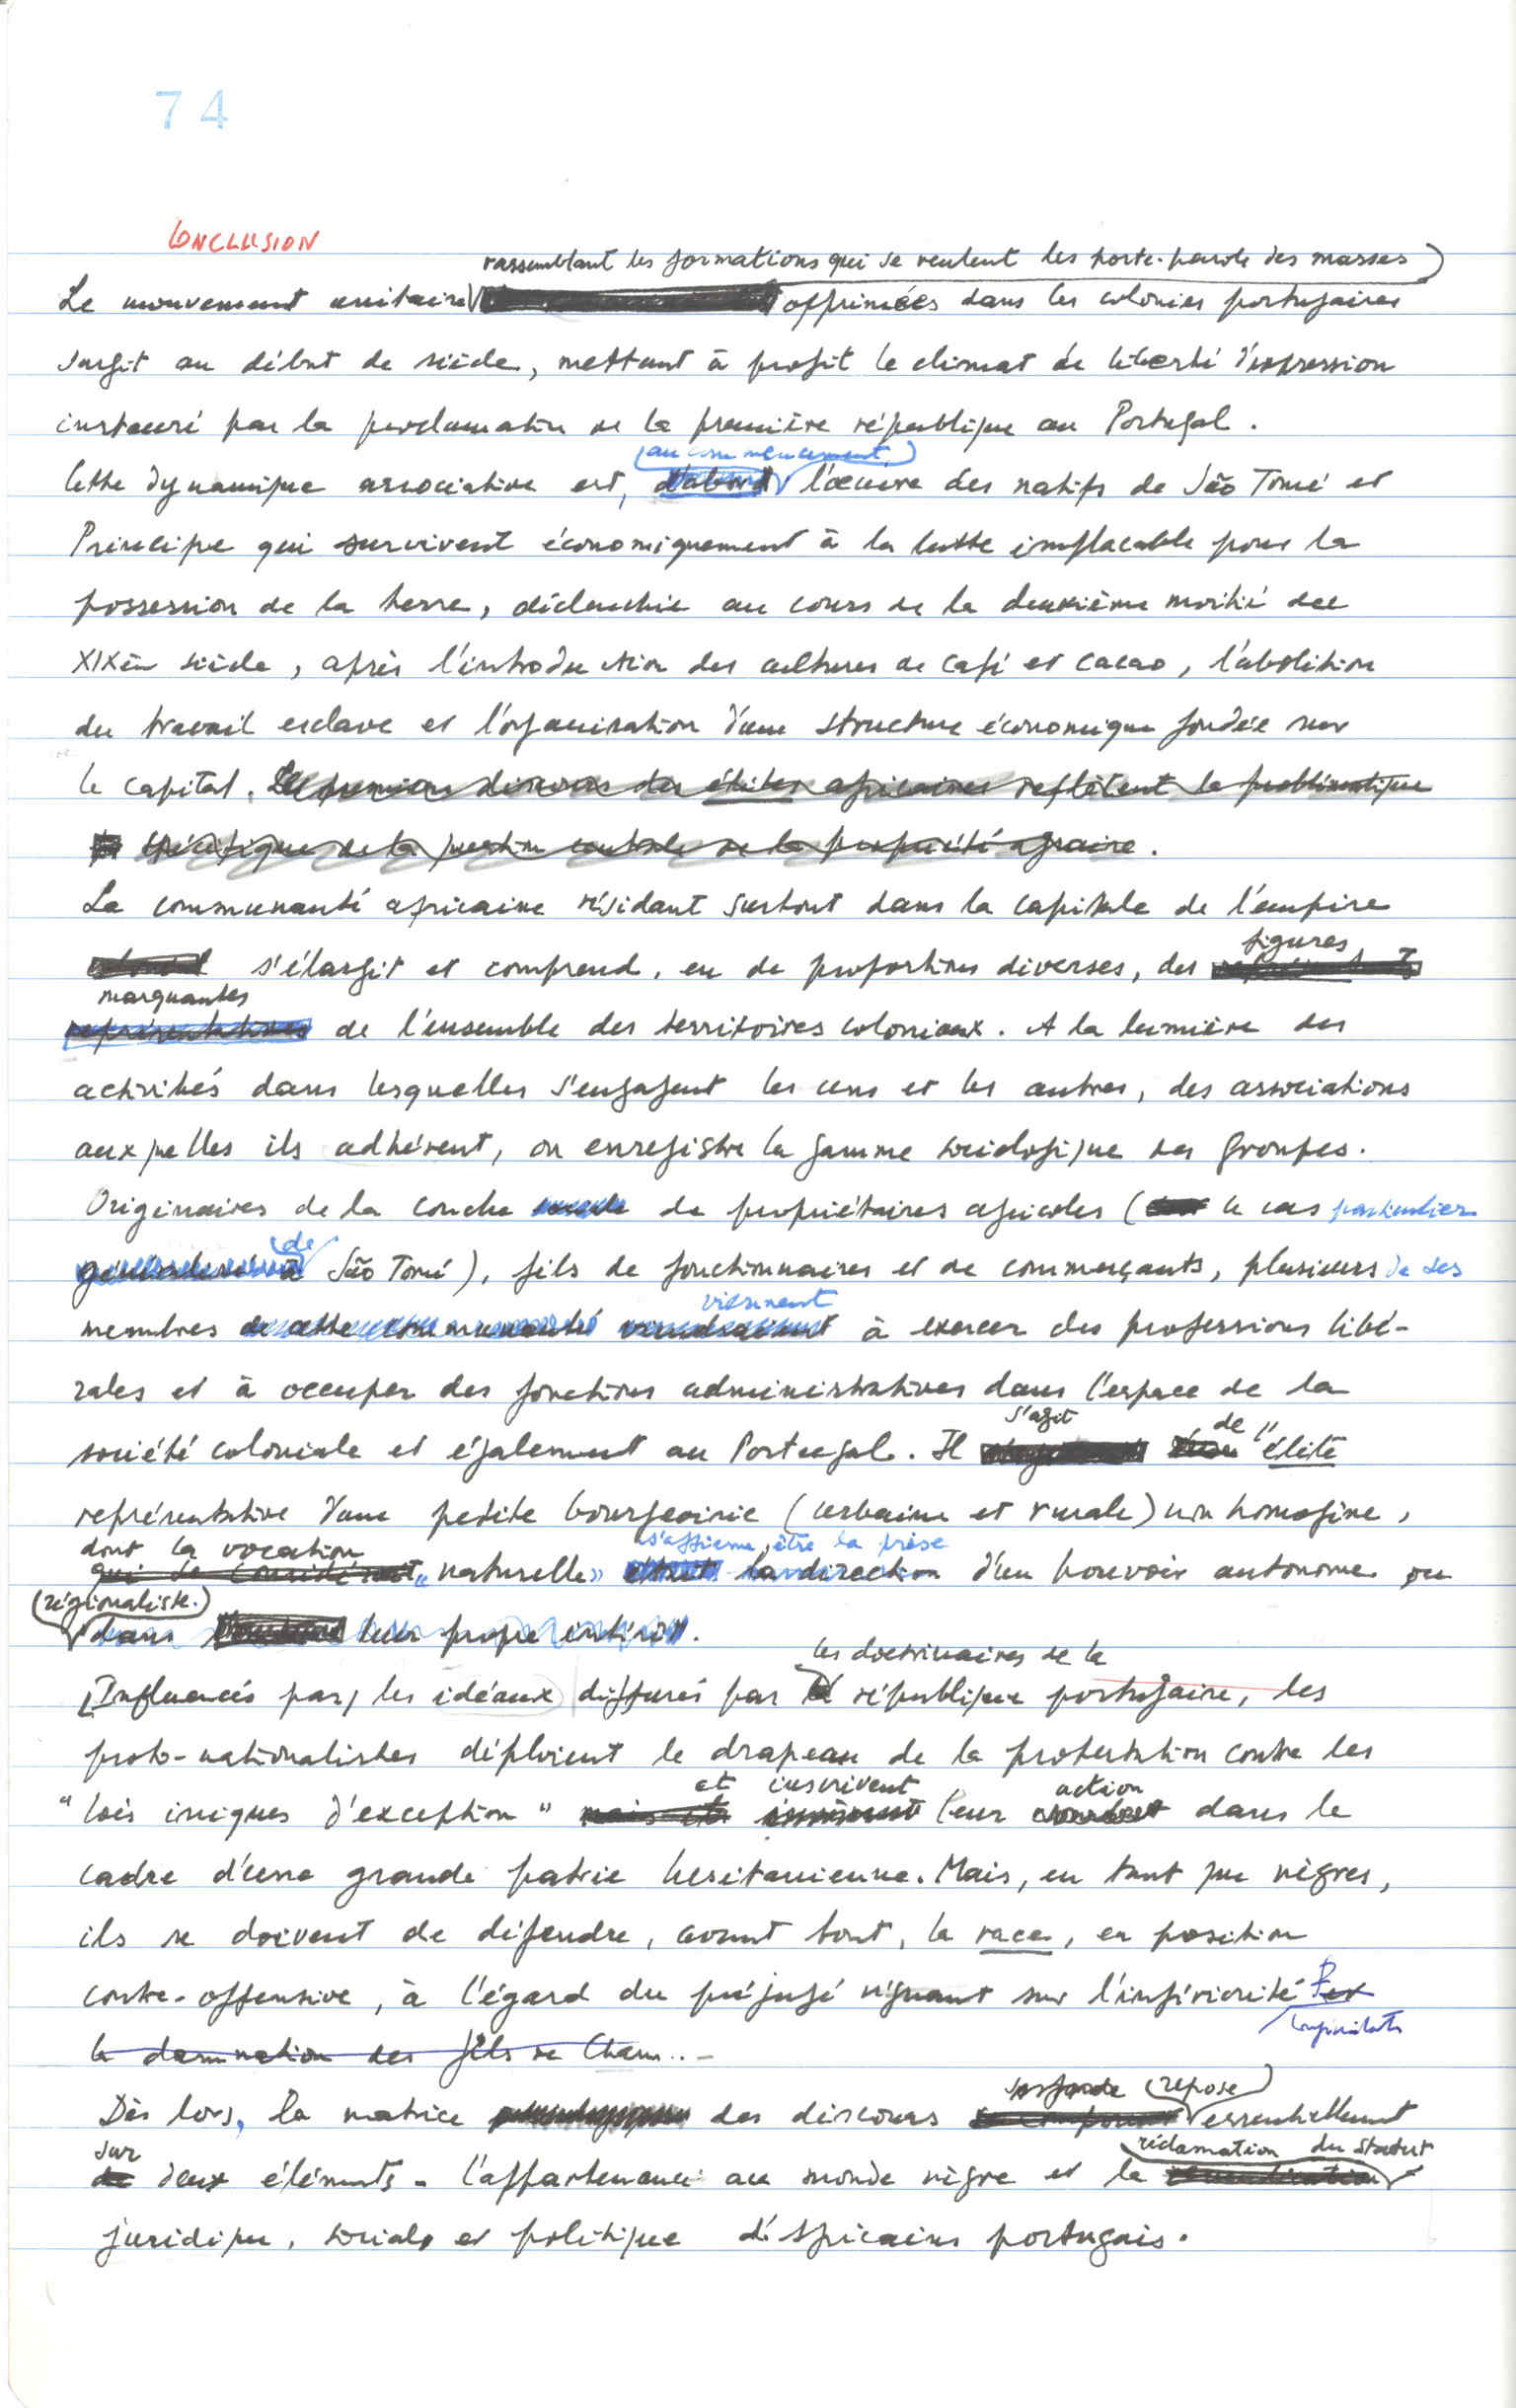 74
CONCLUSION
rassemblant les formations qui se veulent les porte-parole des masses
Le mouvement unitaire opprimées dans les colonies portugaises
surgit au début de siècle, mettant à profit le climat de liberté d'expression
instauré par la proclamation de la première république au Portugal.
au commencement,
Cette dynamique associative est, d'abord l'œuvre des natifs de São Tomé et
Principe qui survivent économiquement à la lutte implacable pour la
possession de la terre, déclenchée au cours de la deuxième moitié du
XIXème siècle, après l'introduction des cultures de café et cacao, l'abolition
du travail esclave et l'organisation d'une structure économique fondée sur
le capital. Les premiers discours des élites africaines reflètent la problématique
spécifique de la question centrale de la propriété agraire.
La communauté africaine résidant surtout dans la capitale de l'empire
figures
colonial s'élargit et comprend, en de proportions diverses, des
marquantes
représentatives de l'ensemble des territoires coloniaux. A la lumière des
activités dans lesquelles s'engagent les uns et les autres, des associations
auxquelles ils adhérent, on enregistre la gamme sociologique des groupes.
Originaires de la couche sociale de propriétaires agricoles ( le cas particulier
de
généralisé à São Tomé), fils de fonctionnaires et de commerçants, plusieurs de ses
viennent
membres de cette communauté viendraient à exercer des professions libé-
rales et à occuper des fonctions administratives dans l'espace de la
s'agit de
société coloniale et également au Portugal. Il "élite
représentative d'une petite bourgeoisie (urbaine et rurale) non homogène,
dont la vocation s'affirme, être la prise
qui se considérait «naturelle» était la direction d'un pouvoir autonome ou
(régionaliste.)
dans leur propre intérêt.
les doctrinaires de la
[Influencés par] les idéaux diffusés par la république portugaise, les
proto-nationalistes déploient le drapeau de la protestation contre les
et inscrivent action
"lois iniques d'exception" mais ils inscrivent leur combat dans le
cadre d'une grande patrie lusitanienne. Mais, en tant que nègres,
ils se doivent de défendre, avant tout, la race, en position
contre-offensive, à l'égard du préjugé régnant sur l'infériorité
la damnation des fils de Cham...
repose
Dès lors, la matrice des discours essentiellement
sur réclamation du statut
de deux éléments - l'appartenance au monde nègre et la revendication
juridique, sociale et politique d'africains portugais.